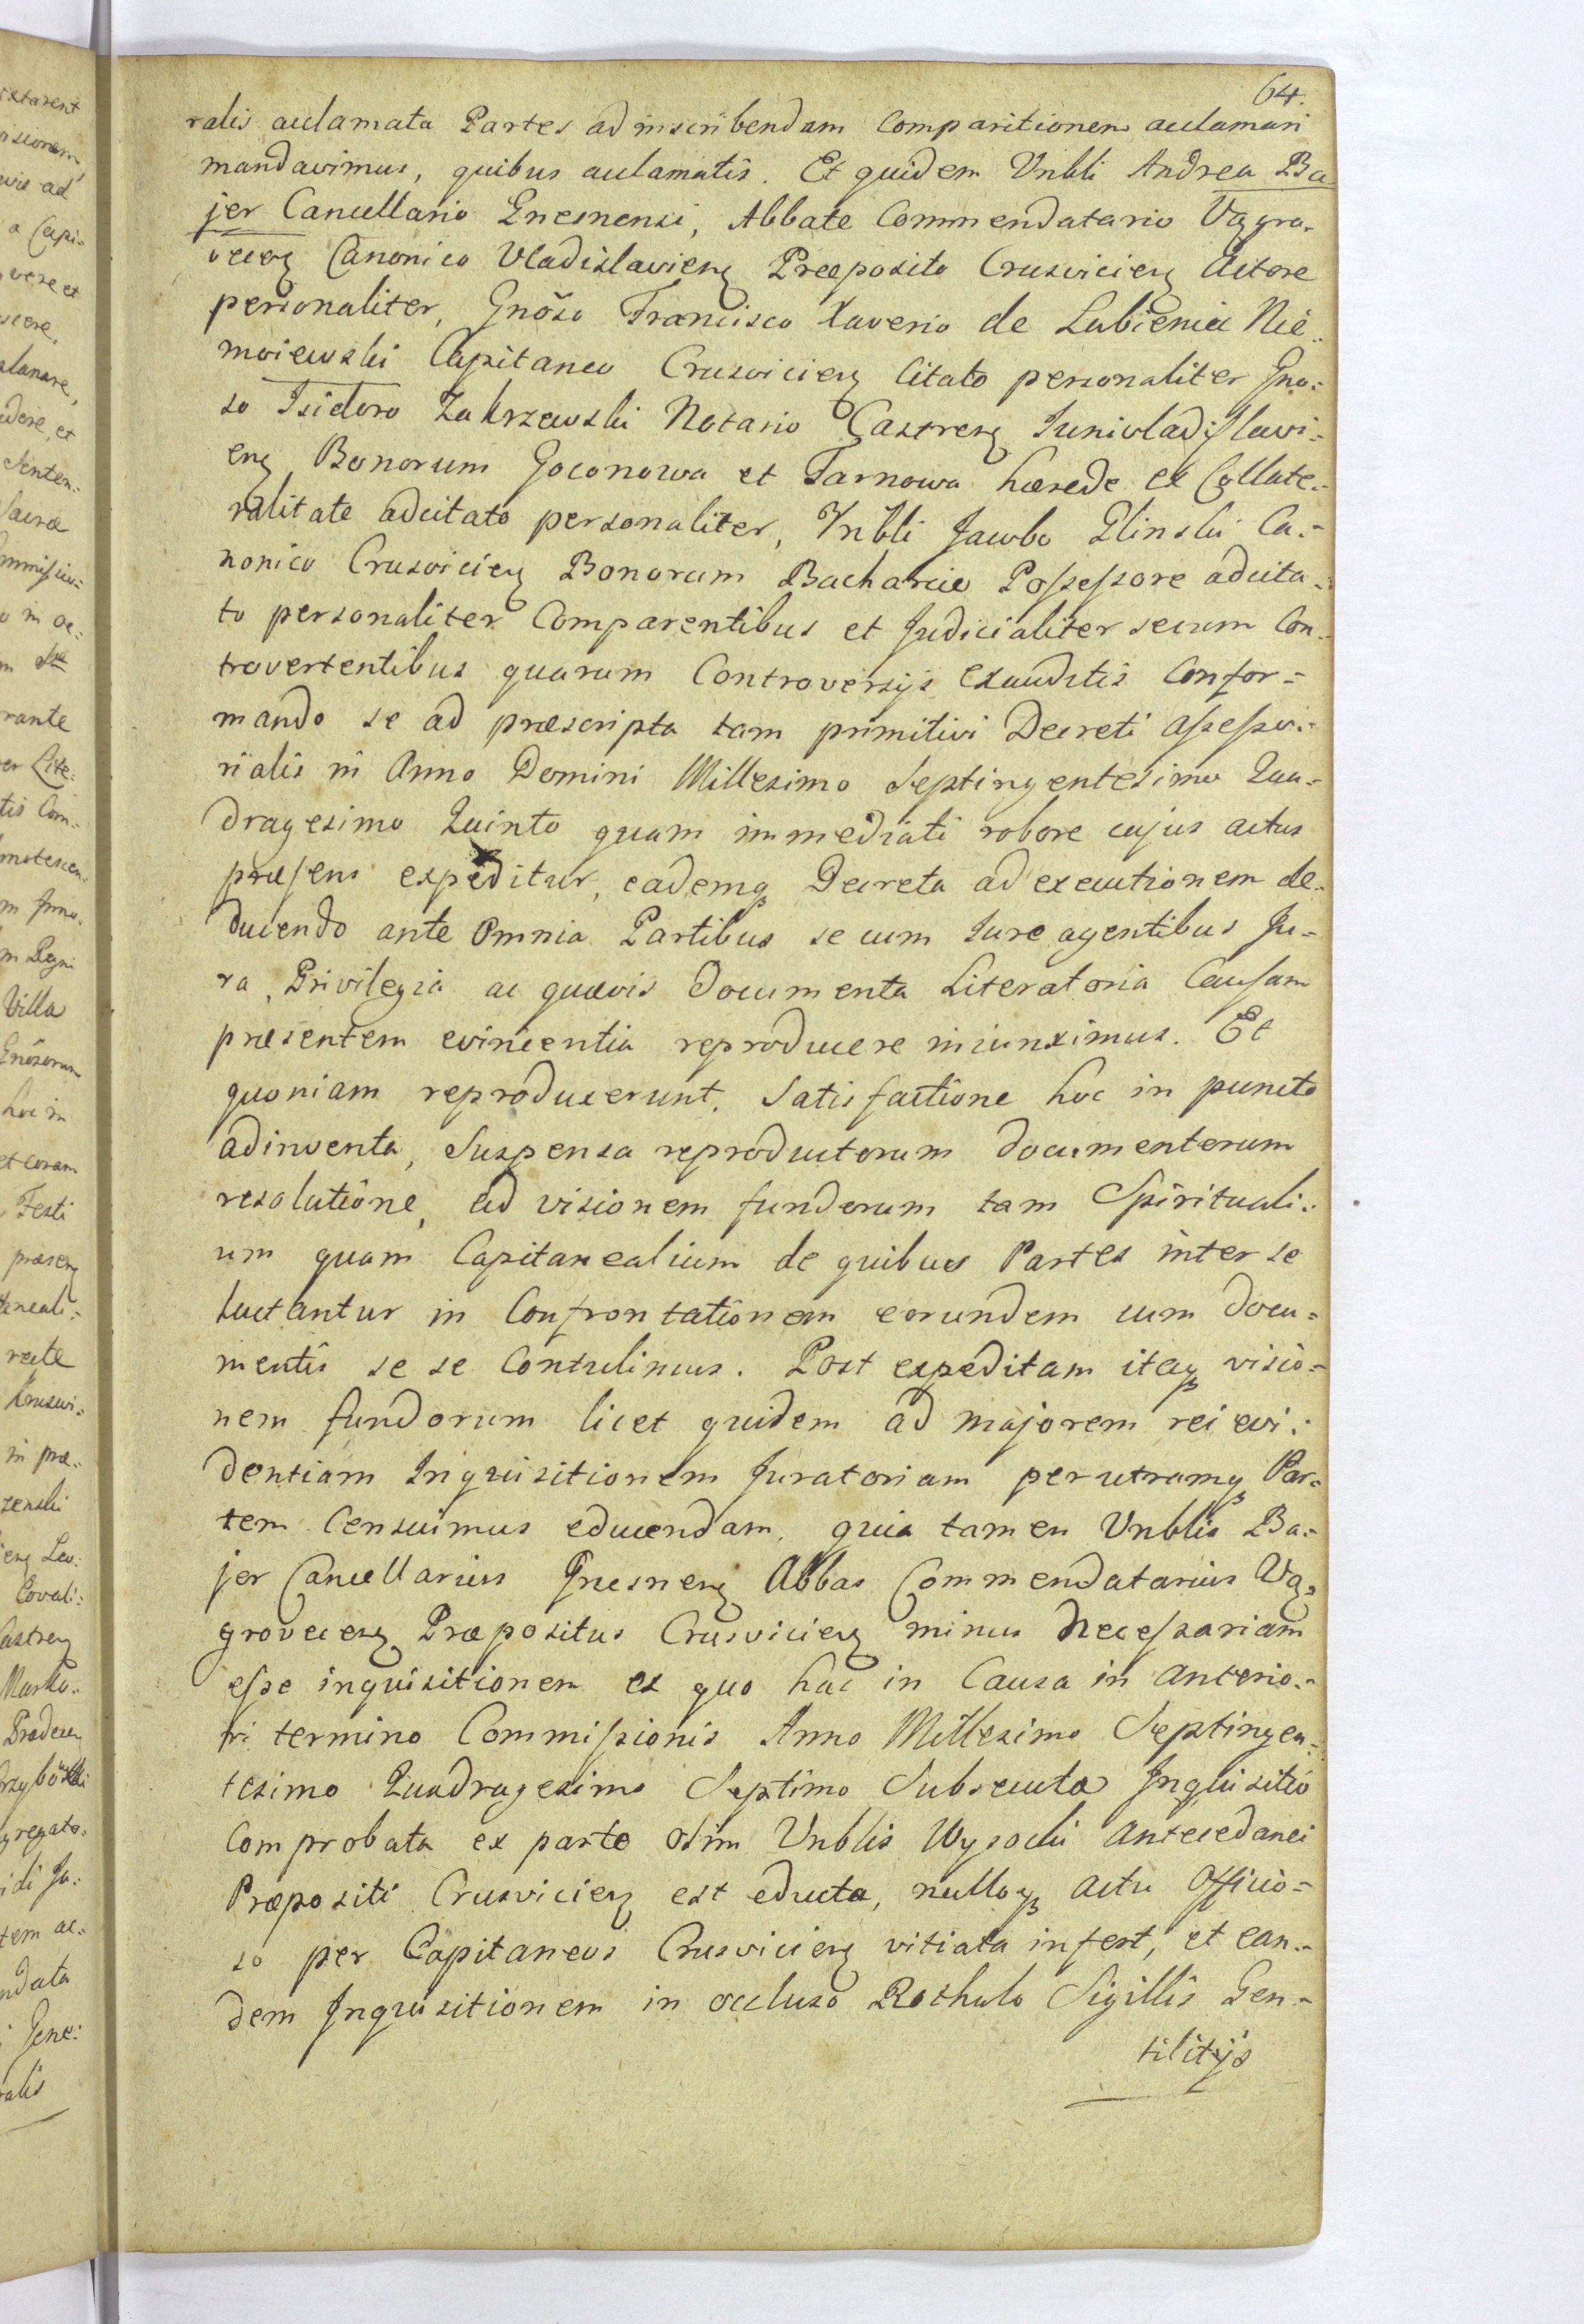 64.
ralis acclamata Partes ad inscribendam Comparitionem acclamari
mandavimus, quibus acclamatis. Et quidem Vnbli Andrea Ba
jer Cancellario Gnesnensi, Abbate Commendatario Vagro-
veceñ Canonico Vladislavieñ Præposito Crusvicieñ Actore
personaliter, Gnõso Francisco Xaverio de Lubienia Nie-
moiewski Capitaneo Crusvicieñ Citato personaliter Gno-
so Isidoro Zakrzewski Notario Castreñ Junivladislavi-
eñ Bonorum Goconowa et Tarnowa hærede ex Collate-
ralitate adcitato personaliter, Vnbli Jacobo Glinski Ca-
nonico Crusvicieñ Bonorum Bacharcie Possessore adcita-
to personaliter Comparentibus et Judicialiter secum Con-
trovertentibus quarum Controversijs Exauditis Confor-
mando se ad præscripta tam primitivi Decreti Assesso-
rialis in Anno Domini Millesimo Septingentesimo Qua-
dragesimo Quinto quam immediati robore cujus actus
præsens expeditur, eademq Decreta ad executionem de-
ducendo ante Omnia Partibus secum Jure agentibus Ju-
ra, Privilegia ac quævis Documenta Literatoria Causam
præsentem evincentia reproducere iniunximus. Et
quoniam reproduxerunt. Satisfactione hoc in puncto
adinventa, Suspensa reproductorum documentorum
resolutione, ad visionem fundorum tam Spirituali-
um quam Capitanealium de quibus Partes inter se
luctantur in Confrontationem eorundem cum docu-
mentis se se Contulimus. Post expeditam itaq visio-
nem fundorum licet quidem ad majorem rei evi-
dentiam Inquisitionem Juratoriam per utramq Par-
tem Censuimus educendam, quia tamen Vnblis Ba-
jer Cancellarius Gnesneñ Abbas Commendatarius Va-
groveceñ Præpositus Crusvicieñ minus Necessariam
esse inquisitionem ex quo hac in Causa in anterio-
ri termino Commissionis Anno Millesimo Septingen-
tesimo Quadragesimo Septimo Subsecuta Inquisitio
Comprobata ex parte olim Vnblis Wysocki Antecedanei
Præpositi Crusvicieñ est educta, nulloq actu Officio-
so per Capitaneos Crusvicieñ vitiata infert, et ean-
dem Inquisitionem in occluso Rothulo Sigillis Gen-
tilitijs